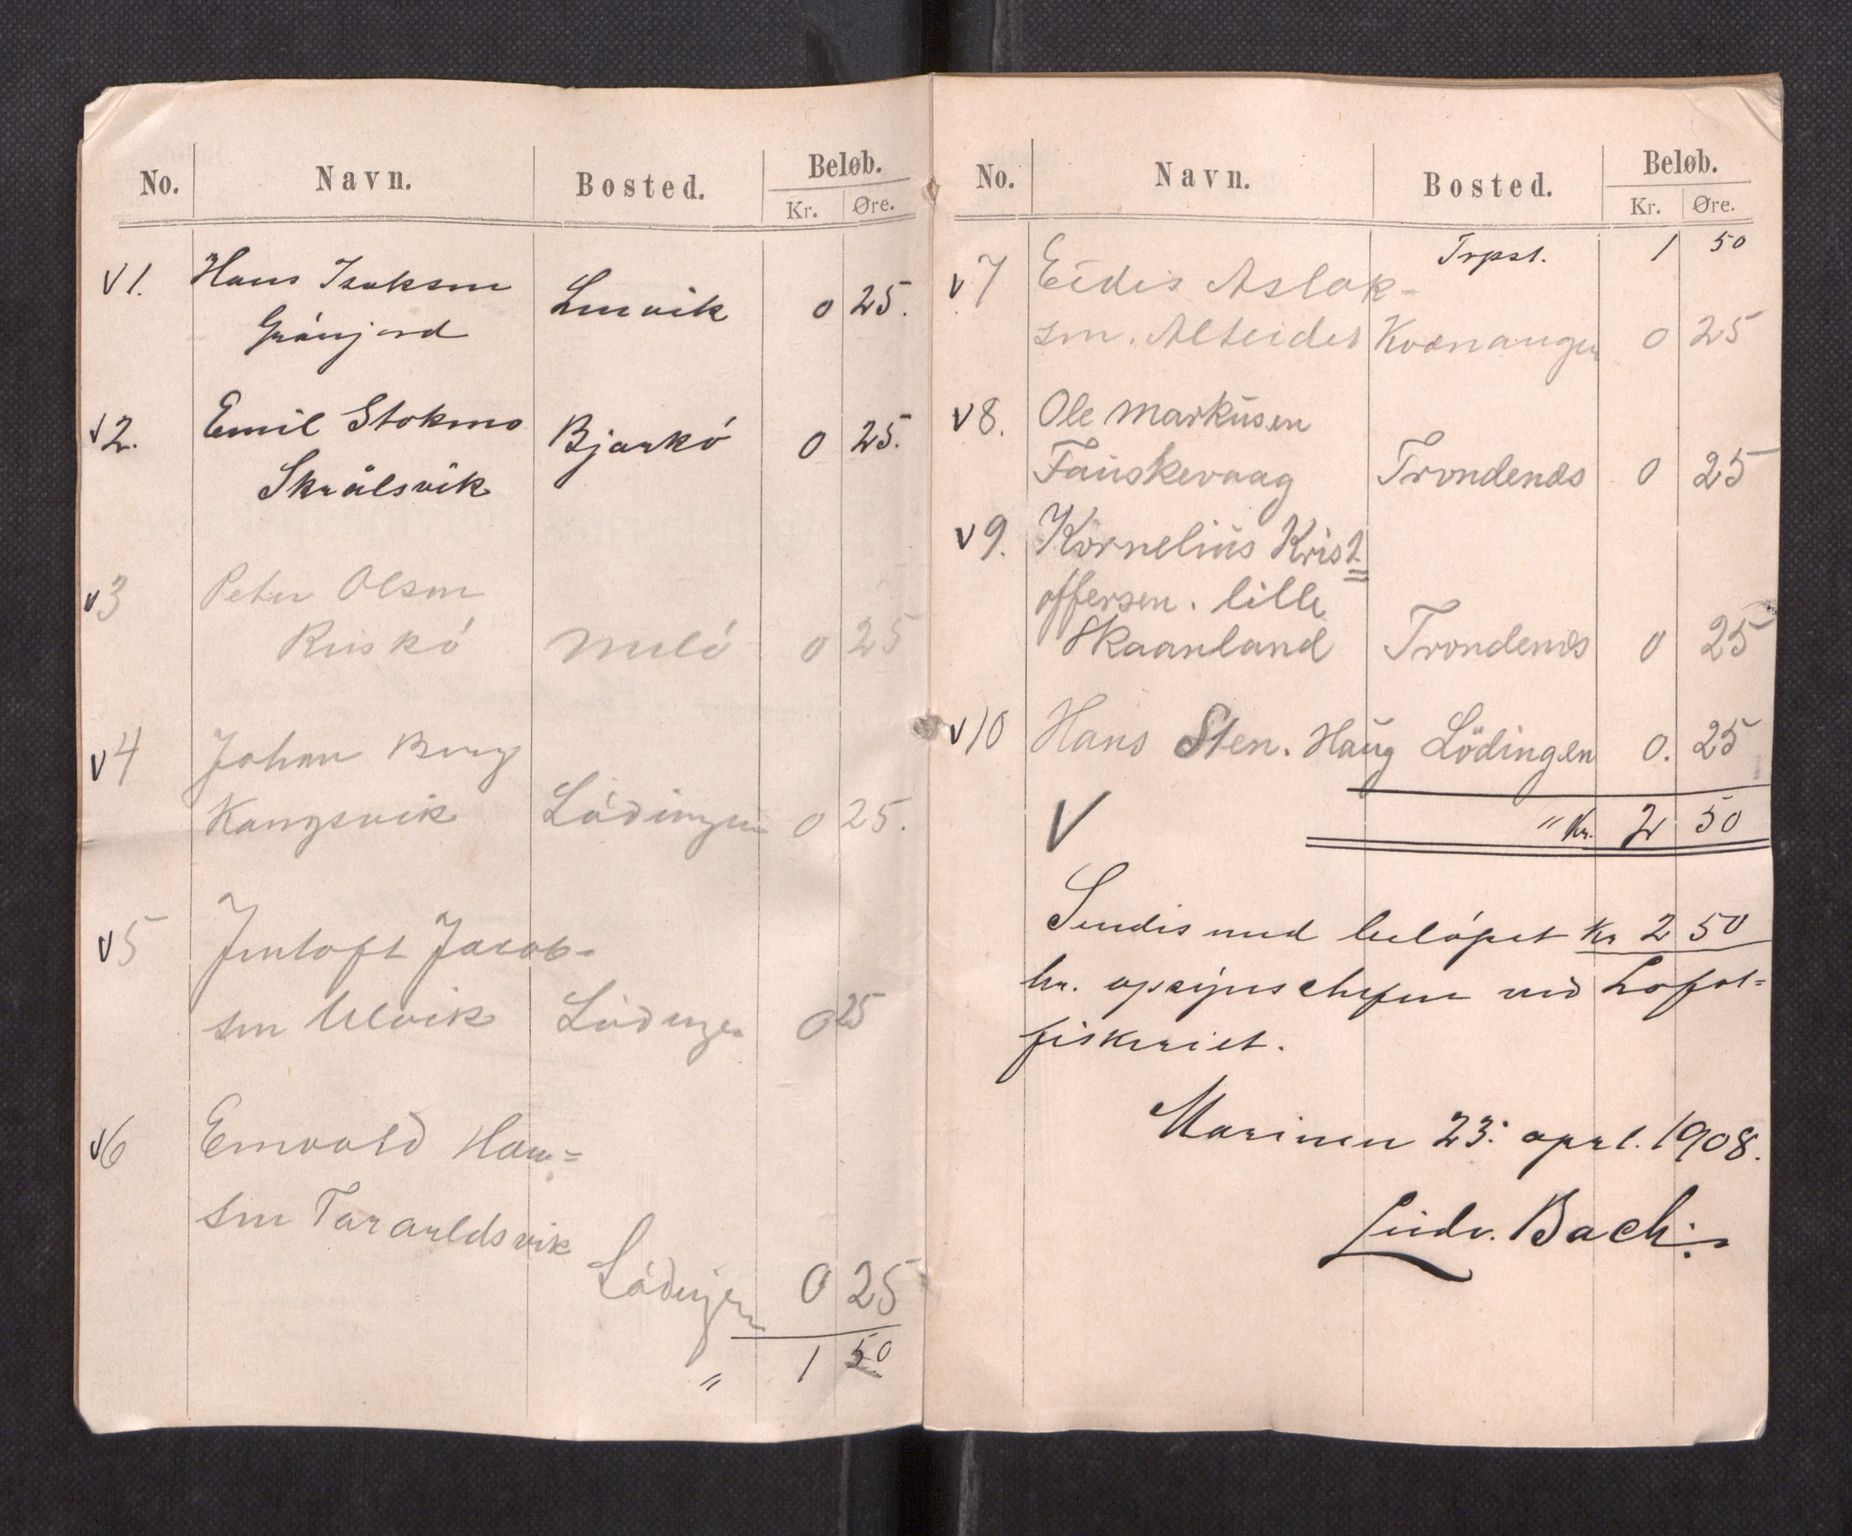 No. Navn. Bosted. Beløb.
Kr. Øre.
V 1. Hans Isaksen
Grånjord Lenvik 0 25.
V 2. Emil Stokmo Bjarkö 0 25.
Skrålsvik
V 3 Peter Olsen
Ruskö Melö 0 25
V 4 Johan Berg
Kangsvik Lödingen 0 25.
V 5 Jentoft Jacob-
sen Ulvik Lödingen 0 25
V 6 Emvald Han=
sen Taraldsvik
Lödingen 0 25
" 1 50
No. Navn. Bosted. Beløb.
Kr. Øre.
Trpst. 1 50
V 7 Eidis Aslak-
sen. Alteidet Kvænangen 0 25
V 8. Ole Markusen
Fauskevaag Trondenæs 0 25
V 9. Kornelius Krist
offersen. lille
Skaanland Trondenæs 0 25
V 10 Hans Sten. Haug Lödingen 0. 25
V " Kr. 2 50
Sendis med belöpet Kr 2 50
hr. opsynschefen ved Lofot=
fiskeriet.
23. aprl. 1908.
Ludv. Bach.